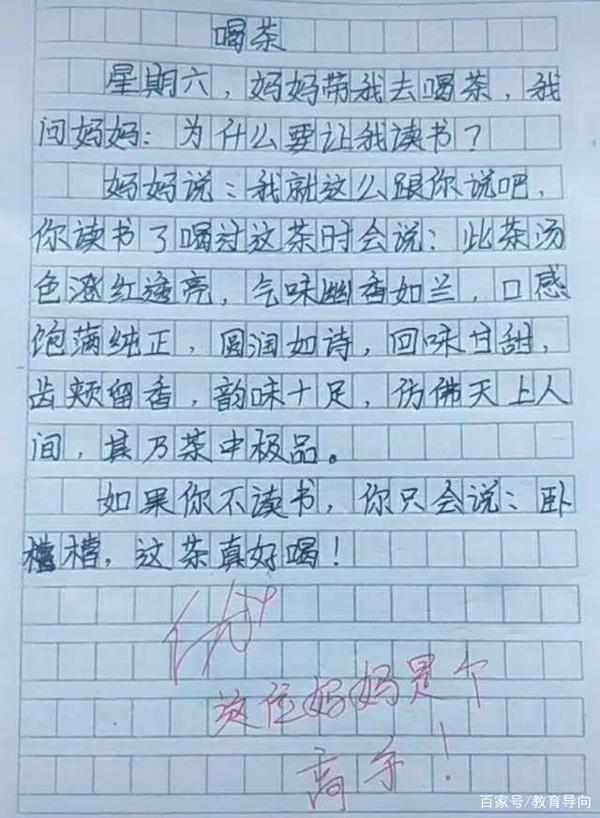 喝茶
星期六，妈妈带我去喝茶，我
问妈妈：为什么要让我读书？
妈妈说：我就这么跟你说吧，
你读书了喝过这茶时会说：此茶汤
色澄红透亮，气味幽香如兰，口感
饱满纯正，圆润如诗，回味甘甜，
齿颊留香，韵味十足，仿佛天上人
间，真乃茶中极品。
如果你不读书，你只会说：卧
槽，这茶真好喝！
优+
这位妈妈是个
高手！
百家号/教育导向